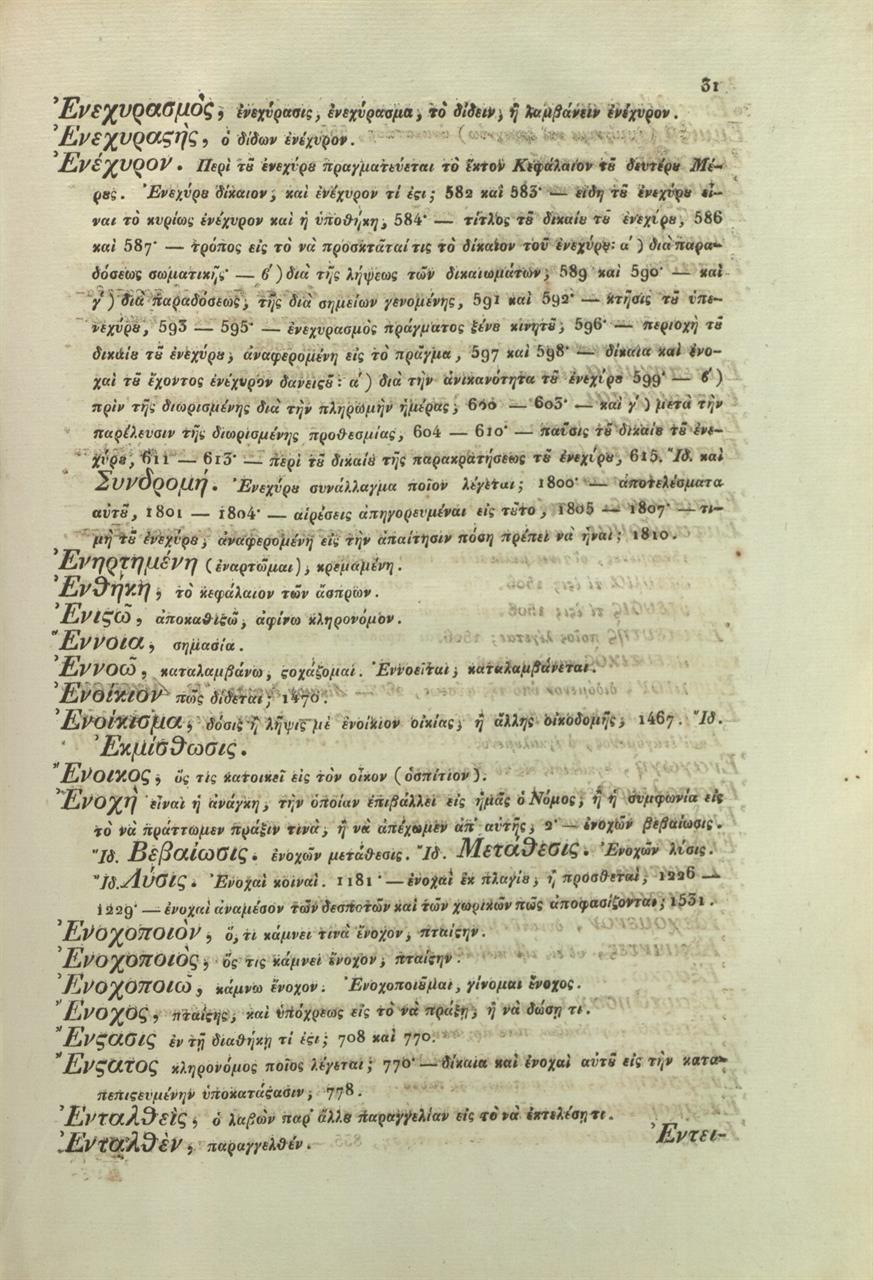 31
Ἐνεχυρασμὸς, ἐνεχύρασις, ἐνεχύρασμα, τὸ δίδειν, ἢ λαμβάνειν ἐνέχυρον.
Ἐνεχυραςὴς, ὁ δίδων ἐνέχυρον.
Ἐνέχυρον. Περὶ τȣ͂ ἐνεχύρȣ πραγματεύεται τὸ ἕκτον Κεφάλαιον τȣ͂ δευτέρȣ Μέ-
ρȣς. Ἐνεχύρȣ δίκαιον, καὶ ἐνέχυρον τί ἐςι; 582 καὶ 583· — εἴδη τȣ͂ ἐνεχύρȣ εἶ-
ναι τὸ κυρίως ἐνέχυρον καὶ ἡ ὑποθήκη, 584· — τίτλος τȣ͂ δικαίȣ τȣ͂ ἐνεχύρȣ, 586
καὶ 587· — τρόπος εἰς τὸ νὰ προσκτᾶταί τις τὸ δίκαιον τοῦ ἐνεχύρȣ: α΄) διὰ παρα-
δόσεως σωματικῆς· — ϐ΄) διὰ τῆς λήψεως τῶν δικαιωμάτων, 589 καὶ 590· — καὶ
γ΄) διὰ παραδόσεως, τῆς διὰ σημείων γενομένης, 591 καὶ 592· — κτῆσις τȣ͂ ὑπε-
νεχύρȣ, 593 — 595· — ἐνεχυρασμὸς πράγματος ξένȣ κινητȣ͂, 596· — περιοχὴ τȣ͂
δικαίȣ τȣ͂ ἐνεχύρȣ, ἀναφερομένη εἰς τὸ πρᾶγμα, 597 καὶ 598· — δίκαια καὶ ἐνο-
χαὶ τȣ͂ ἔχοντος ἐνέχυρον δανειςȣ͂: α΄) διὰ τὴν ἀνικανότητα τȣ͂ ἐνεχύρȣ 599· — ϐ΄)
πρὶν τῆς διωρισμένης διὰ τὴν πληρωμὴν ἡμέρας, 600 — 603· — καὶ γ΄) μετὰ τὴν
παρέλευσιν τῆς διωρισμένης προθεσμίας, 604 — 610· — παῦσις τȣ͂ δικαίȣ τȣ͂ ἐνε-
χύρȣ, 611 — 613· — περὶ τȣ͂ δικαίȣ τῆς παρακρατήσεως τȣ͂ ἐνεχύρȣ, 615. Ἴδ. καὶ
Συνδρομή. Ἐνεχύρȣ συνάλλαγμα ποῖον λέγεται; 1800· — ἀποτελέσματα
αὐτȣ͂, 1801 — 1804· — αἱρέσεις ἀπηγορευμέναι εἰς τȣ͂το, 1805 — 1807· — τι-
μὴ τȣ͂ ἐνεχύρȣ, ἀναφερομένη εἰς τὴν ἀπαίτησιν πόση πρέπει νὰ ἦναι; 1810.
Ἐνηρτημένη (ἐναρτῶμαι), κρεμαμένη.
Ἐνθήκη, τὸ κεφάλαιον τῶν ἄσπρων.
Ἐνιςῶ, ἀποκαθιςῶ, ἀφίνω κληρονόμον.
Ἔννοια, σημασία.
Ἐννοῶ, καταλαμβάνω, ςοχάζομαι. Ἐννοεῖται, καταλαμβάνεται.
Ἐνοίκιον πῶς δίδεται; 1470.
Ἐνοίκισμα, δόσις ἢ λῆψις μὲ ἐνοίκιον οἰκίας, ἢ ἄλλης οἰκοδομῆς, 1467. Ἴδ.
Ἐκμίσθωσις.
Ἔνοικος, ὅς τις κατοικεῖ εἰς τὸν οἶκον (ὁσπίτιον).
Ἐνοχὴ εἶναι ἡ ἀνάγκη, τὴν ὁποίαν ἐπιβάλλει εἰς ἡμᾶς ὁ Νόμος, ἢ ἡ συμφωνία εἰς
τὸ νὰ πράττωμεν πρᾶξιν τινὰ, ἢ νὰ ἀπέχωμεν ἀπ' αὐτῆς, 2· — ἐνοχῶν βεβαίωσις.
Ἴδ. Βεβαίωσις. ἐνοχῶν μετάθεσις. Ἴδ. Μετάθεσις. Ἐνοχῶν λύσις.
Ἴδ. Λύσις. Ἐνοχαὶ κοιναί. 1181· — ἐνοχαὶ ἐκ πλαγίȣ, ἢ προσθεταὶ, 1226 —
1229· — ἐνοχαὶ ἀναμέσον τῶν δεσποτῶν καὶ τῶν χωρικῶν πῶς ἀποφασίζονται; 1531.
Ἐνοχοποιὸν, ὅ,τι κάμνει τινὰ ἔνοχον, πταίςην.
Ἐνοχοποιὸς, ὅς τις κάμνει ἔνοχον, πταίςην.
Ἐνοχοποιῶ, κάμνω ἔνοχον. Ἐνοχοποιȣ͂μαι, γίνομαι ἔνοχος.
Ἔνοχος, πταίςης, καὶ ὑπόχρεως εἰς τὸ νὰ πράξῃ, ἢ νὰ δώσῃ τι.
Ἔνςασις ἐν τῇ διαθήκῃ τί ἐςι; 708 καὶ 770.
Ἔνςατος κληρονόμος ποῖος λέγεται; 770· — δίκαια καὶ ἐνοχαὶ αὐτȣ͂ εἰς τὴν κατα-
πεπιςευμένην ὑποκατάςασιν, 778.
Ἐνταλθεὶς, ὁ λαβὼν παρ' ἄλλȣ παραγγελίαν εἰς τὸ νὰ ἐκτελέσῃ τι.
Ἐνταλθὲν, παραγγελθέν.
Ἐντει-